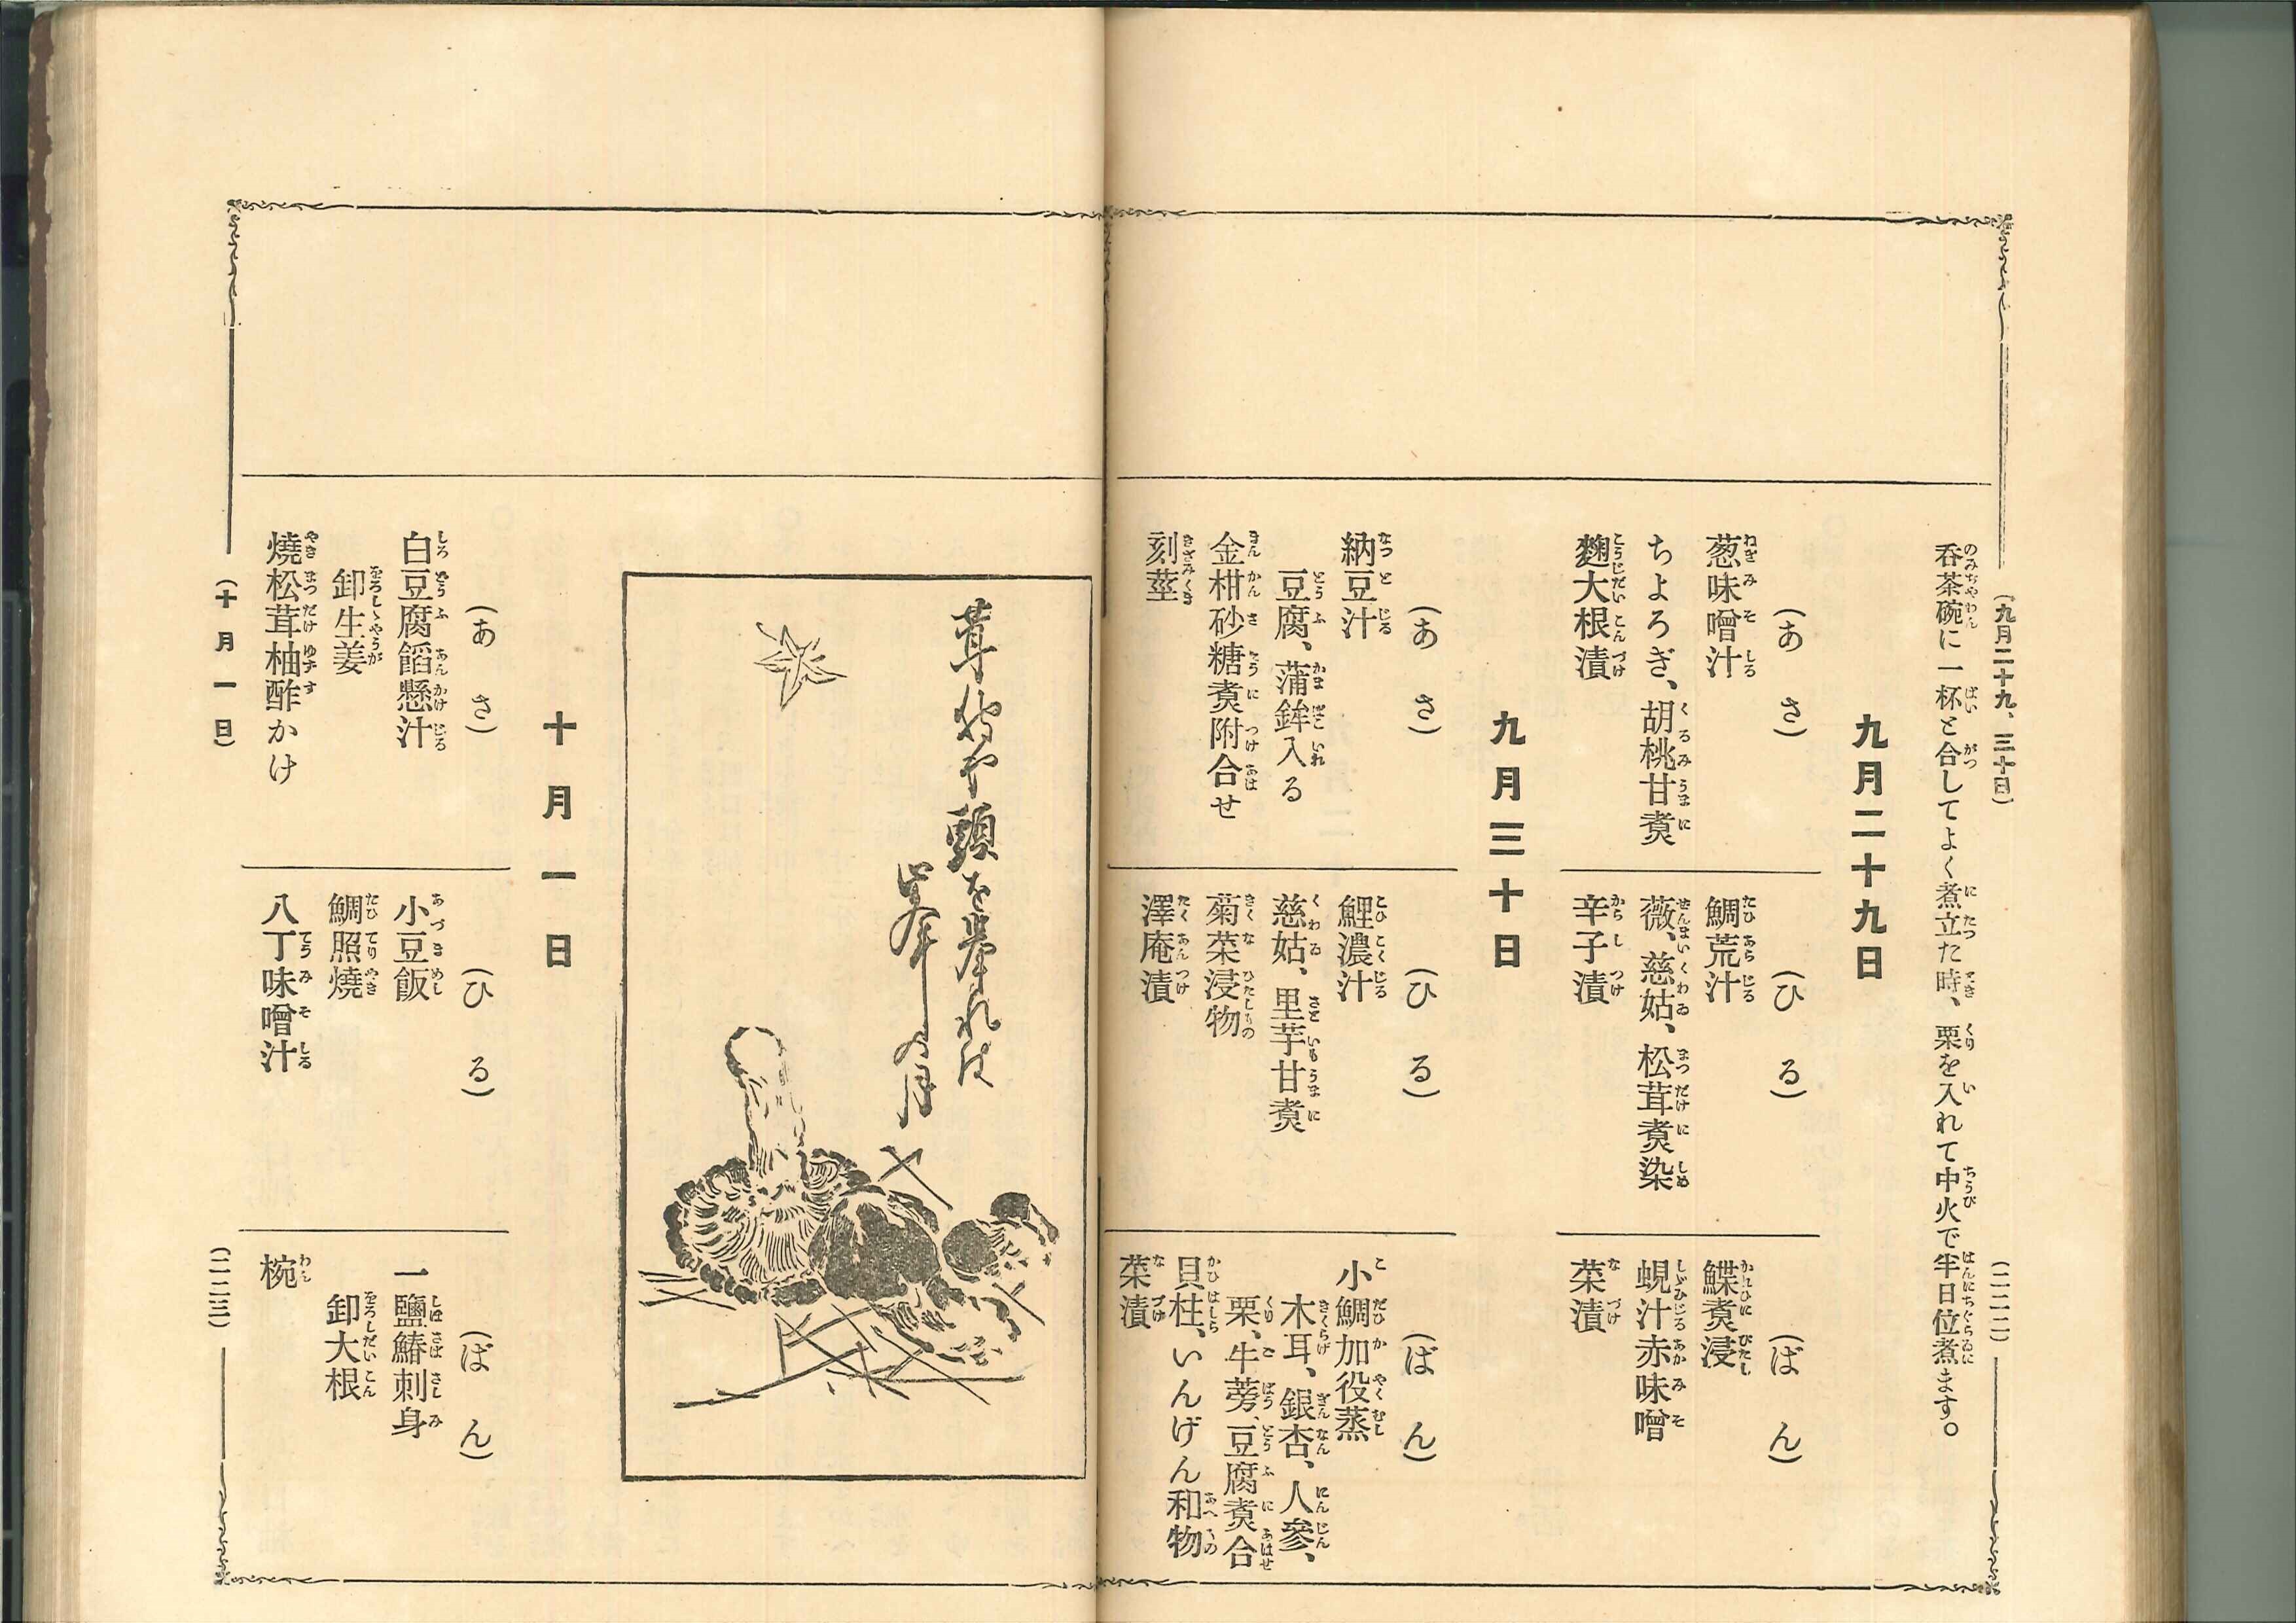 (九月二十九、三十日)
(二二二)
呑茶碗に一杯と合してよく煮立た時、栗を入れて中火で半日位煮ます。
九月二十九日
(あさ)
葱味噌汁
ちよろぎ、胡桃甘煑
麴大根漬
(ひる)
鯛荒汁
薇、慈姑、松茸煑染
辛子漬
(ばん)
鰈煑浸
蜆汁赤味噌
菜漬
九月三十日
(あさ)
納豆汁
豆腐、蒲鉾入る
金柑砂糖煑附合せ
刻莖
(ひる)
鯉濃汁
慈姑、里芋甘煑
菊菜浸物
澤庵漬
(ばん)
小鯛加役蒸
木耳、銀杏、人參、
栗、牛蒡、豆腐煑合
貝柱、いんげん和物
菜漬
茸狩や頭を擧れば
峯の月
十月一日
(あさ)
白豆腐餡懸汁
卸生姜
燒松茸柚酢かけ
(ひる)
小豆飯
鯛照燒
八丁味噌汁
(ばん)
一鹽鰆刺身
卸大根
椀
(十月一日)
(二二三)